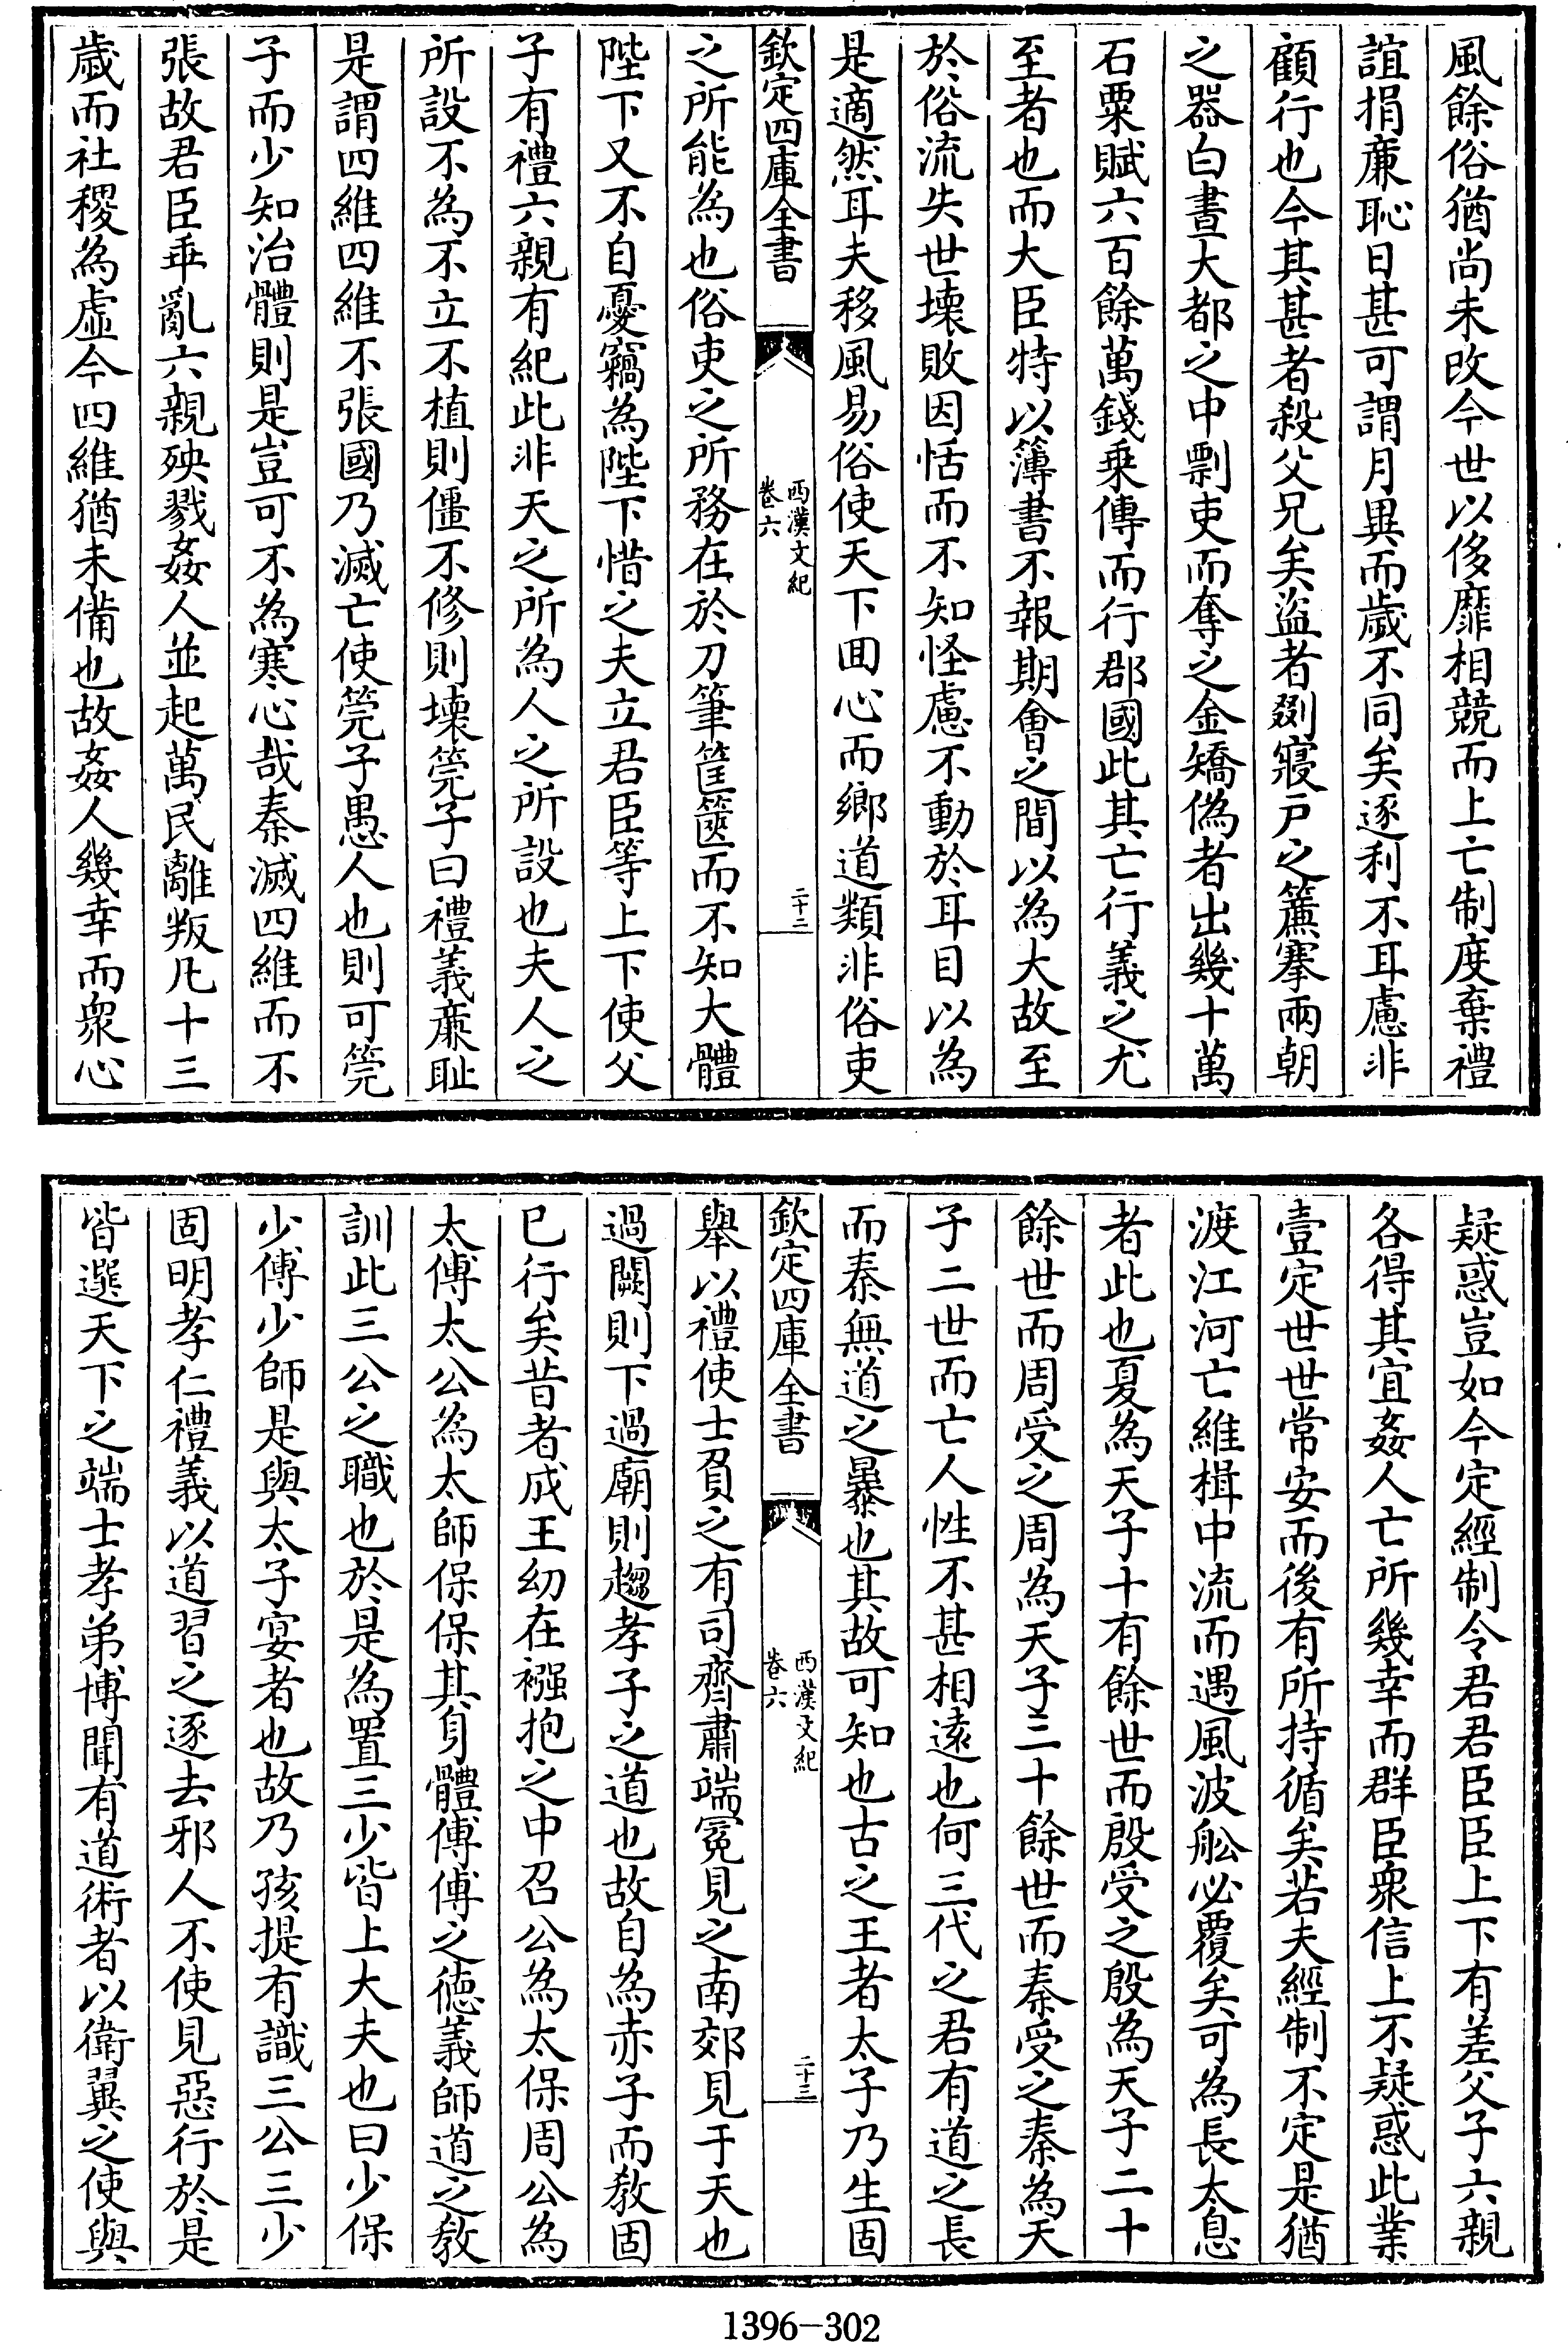 風餘俗猶尚未攺今世以侈靡相競而上亡制度棄禮
誼捐廉恥日甚可謂月異而歲不同矣逐利不耳慮非
顧行也今其甚者殺父兄矣盗者剟寢戸之簾搴兩朝
之器白晝大都之中剽吏而奪之金矯偽者出幾十萬
石粟賦六百餘萬錢乗傳而行郡國此其亡行義之尤
至者也而大臣特以簿書不報期會之間以為大故至
於俗流失世壊敗因恬而不知怪慮不動於耳目以為
是適然耳夫移風易俗使天下囬心而鄉道類非俗吏
欽定四庫全書
西漢文紀
卷六
二十二
之所能為也俗吏之所務在於刀筆筐篋而不知大體
陛下又不自憂竊為陛下惜之夫立君臣等上下使父
子有禮六親有紀此非天之所為人之所設也夫人之
所設不為不立不植則僵不修則壊筦子曰禮義廉耻
是謂四維四維不張國乃滅亡使筦子愚人也則可筦
子而少知治體則是豈可不為寒心哉秦滅四維而不
張故君臣乖亂六親殃戮姦人並起萬民離叛凡十三
歳而社稷為虛今四維猶未備也故姦人幾幸而衆心
疑惑豈如今定經制令君君臣臣上下有差父子六親
各得其宜姦人亡所幾幸而群臣衆信上不疑惑此業
壹定世世常安而後有所持循矣若夫經制不定是猶
渡江河亡維楫中流而遇風波舩必覆矣可為長太息
者此也夏為天子十有餘世而殷受之殷為天子二十
餘世而周受之周為天子三十餘世而秦受之秦為天
子二世而亡人性不甚相逺也何三代之君有道之長
而秦無道之暴也其故可知也古之王者太子乃生固
欽定四庫全書
西漢文紀
卷六
二十三
舉以禮使士負之有司齊肅端冕見之南郊見于天也
過闕則下過廟則趨孝子之道也故自為赤子而教固
已行矣昔者成王幼在襁抱之中召公為太保周公為
太傅太公為太師保保其身體傅傅之徳義師道之教
訓此三公之職也於是為置三少皆上大夫也曰少保
少傅少師是與太子宴者也故乃孩提有識三公三少
固明孝仁禮義以道習之逐去邪人不使見惡行於是
皆選天下之端士孝弟博聞有道術者以衛翼之使與
1396-302